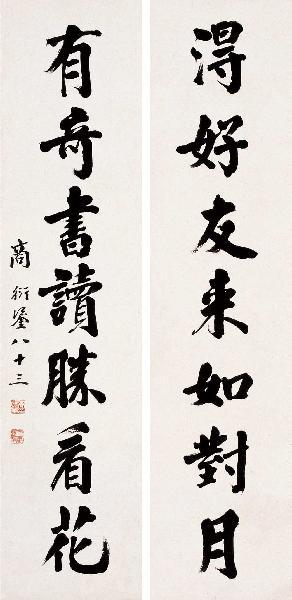 得好友来如對月
有奇書讀勝看花
商衍鎏八十三